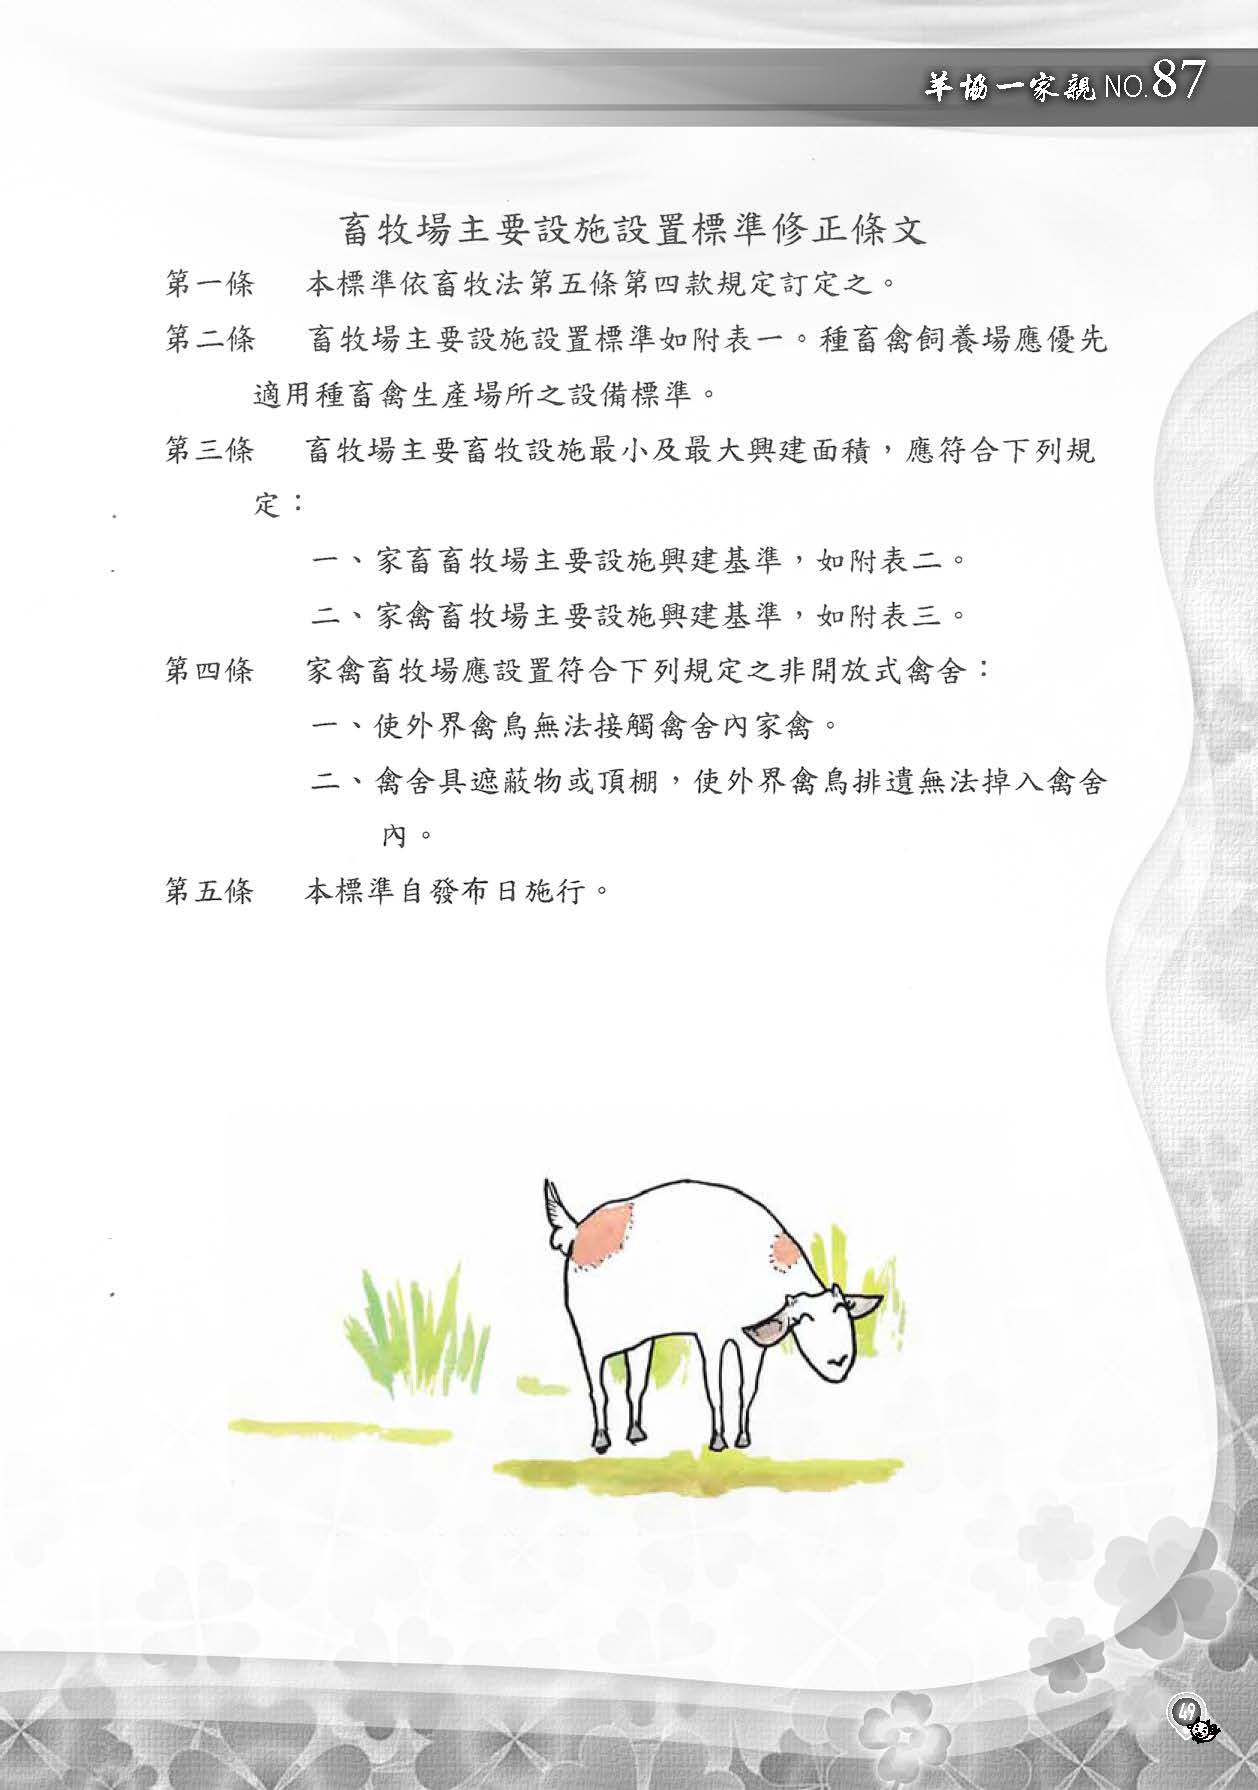 羊協一家親 NO.87
畜牧場主要設施設置標準修正條文
第一條 本標準依畜牧法第五條第四款規定訂定之。
第二條 畜牧場主要設施設置標準如附表一。種畜禽飼養場應優先
適用種畜禽生產場所之設備標準。
第三條 畜牧場主要畜牧設施最小及最大興建面積，應符合下列規
定：
一、家畜畜牧場主要設施興建基準，如附表二。
二、家禽畜牧場主要設施興建基準，如附表三。
第四條 家禽畜牧場應設置符合下列規定之非開放式禽舍：
一、使外界禽鳥無法接觸禽舍內家禽。
二、禽舍具遮蔽物或頂棚，使外界禽鳥排遺無法掉入禽舍
內。
第五條 本標準自發布日施行。
49